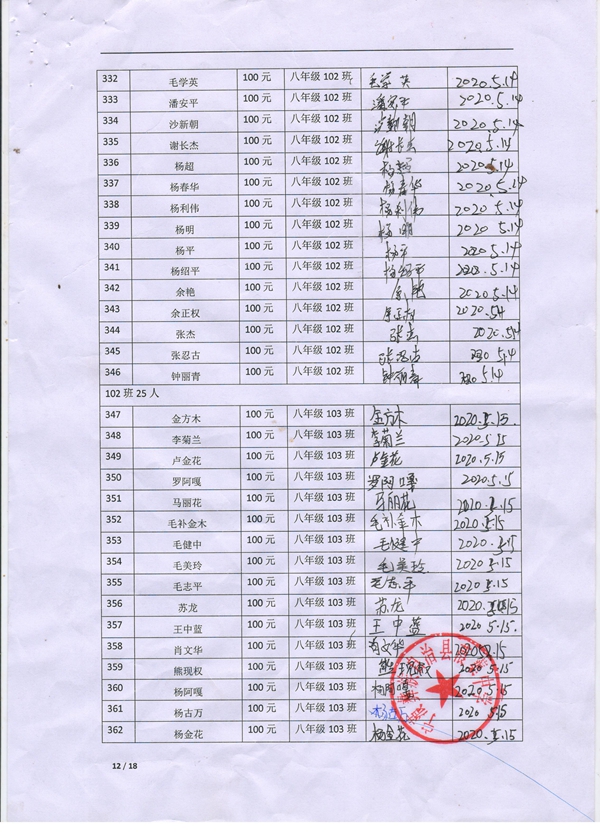 332 毛学英 100 元 八年级 102 班 毛学英 2020.5.14
333 潘安平 100 元 八年级 102 班 潘安平 2020.5.14
334 沙新朝 100 元 八年级 102 班 沙新朝 2020.5.14
335 谢长杰 100 元 八年级 102 班 谢长杰 2020.5.14
336 杨超 100 元 八年级 102 班 杨超 2020.5.14
337 杨春华 100 元 八年级 102 班 杨春华 2020.5.14
338 杨利伟 100 元 八年级 102 班 杨利伟 2020.5.14
339 杨明 100 元 八年级 102 班 杨明 2020.5.14
340 杨平 100 元 八年级 102 班 杨平 2020.5.14
341 杨绍平 100 元 八年级 102 班 杨绍平 2020.5.14
342 余艳 100 元 八年级 102 班 余艳 2020.5.14
343 余正权 100 元 八年级 102 班 余正权 2020.5.14
344 张杰 100 元 八年级 102 班 张杰 2020.5.14
345 张忍古 100 元 八年级 102 班 张忍古 2020 5.14
346 钟丽青 100 元 八年级 102 班 钟丽青 2020 5.14
102 班 25 人
347 金方木 100 元 八年级 103 班 金方木 2020.5.15
348 李菊兰 100 元 八年级 103 班 李菊兰 2020.5.15
349 卢金花 100 元 八年级 103 班 卢金花 2020.5.15
350 罗阿嘎 100 元 八年级 103 班 罗阿嘎 2020.5.15
351 马丽花 100 元 八年级 103 班 马丽花 2020.5.15
352 毛补金木 100 元 八年级 103 班 毛补金木 2020.5.15
353 毛健中 100 元 八年级 103 班 毛健中 2020.5.15
354 毛美玲 100 元 八年级 103 班 毛美玲 2020.5.15
355 毛志平 100 元 八年级 103 班 毛志平 2020.5.15
356 苏龙 100 元 八年级 103 班 苏龙 2020.5.15
357 王中蓝 100 元 八年级 103 班 王中蓝 2020 5.15
358 肖文华 100 元 八年级 103 班 肖文华 2020.5.15
359 熊现权 100 元 八年级 103 班 熊现权 2020 5.15
360 杨阿嘎 100 元 八年级 103 班 杨阿嘎 2020.5.15
361 杨古万 100 元 八年级 103 班 2020 5.15
362 杨金花 100 元 八年级 103 班 杨金花 2020.5.15
12 / 18